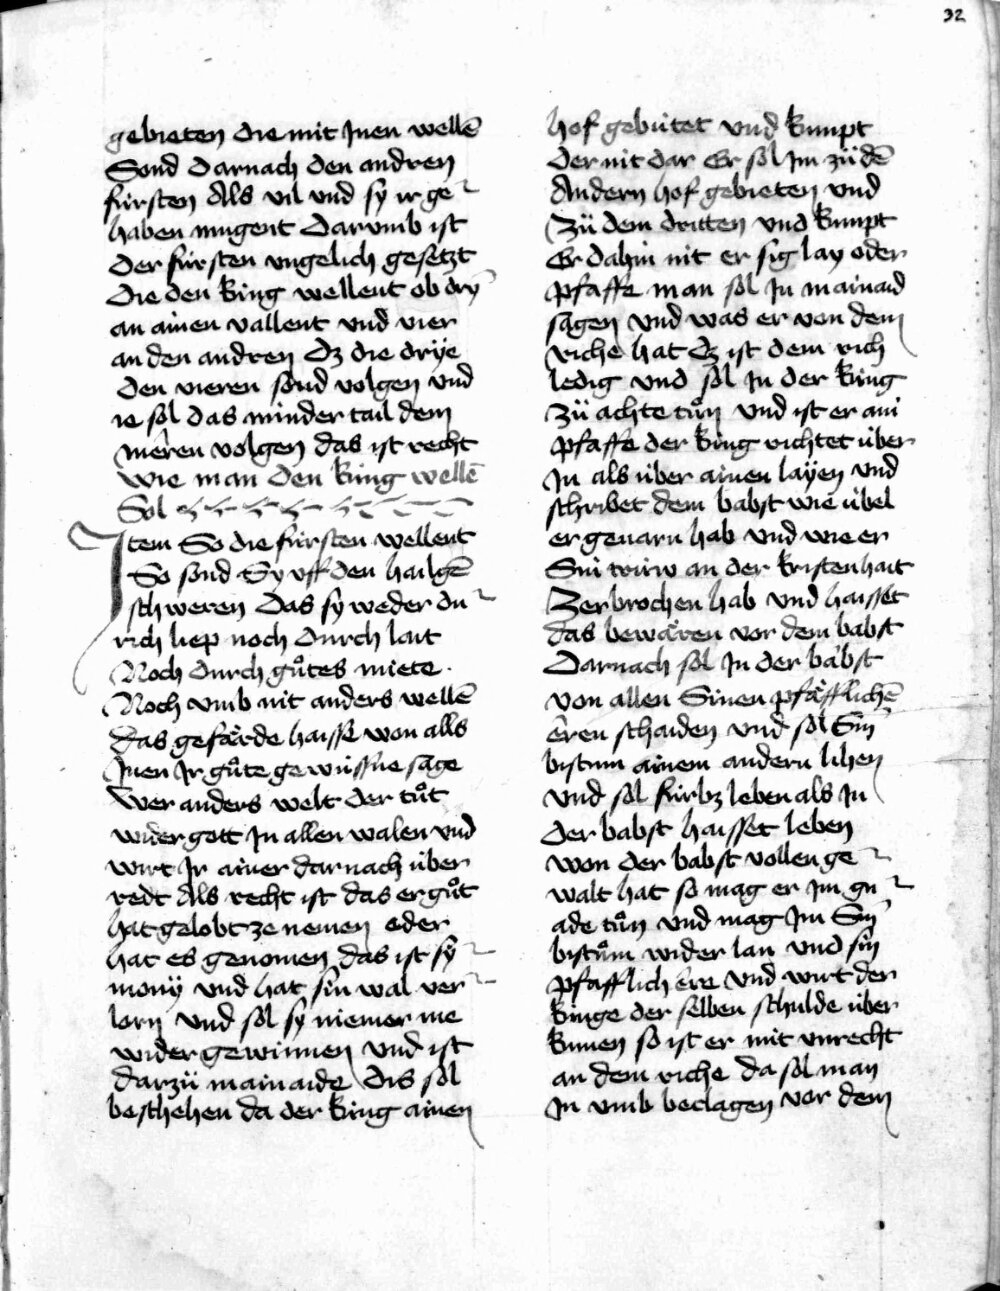 32
gebieten die mit Jnen wellē
Sond darnach den andren
fürsten Als vil vnd sy ir ge
haben mugent Darumb ist
der fürsten vngelich gesetzt
Die den king wellent ob dry
an ainen vallent vnd vier
an den andren Dz die drÿe
den vieren sond volgen vnd
ie sol das minder tail dem
mêren volgen das ist recht
wie man den king wellē
Sol
Jtem So die fürsten wellent
So sond Sy vff den hailgē
schweren Das sy weder du
rich liep noch durch lait
Noch durch gůtes miete.
Noch vmb nit anders wellē
das gefärde haisse won alls
Jnen Jr gůte gewússne sage
wer anders welt der tůt
wider gott Jn allen walen vnd
wirt Jr ainer darnach über
redt Als recht ist das er gůt
hat gelobt ze nemen oder
hat es genomen das ist sÿ
monÿ vnd hat sin wal ver
lorn vnd sol sy niemer me
wider gewinnen vnd ist
darzü mainaide Dis sol
beschehen da der king ainen
hof gebütet vnd kumpt
der nit dar Er sol Jm zü dē
Andern hof gebieten vnd
Zü dem dritten vnd kumpt
Er dahin nit er sig lay oder
pfaffe man sol Jn mainaid
sagen vnd was er von dem
riche hat Dz ist dem rich
ledig vnd sol Jn der king
zü achte tůn vnd ist er ain
pfaffe der king richtet über
Jn als über ainen laÿen vnd
schribet dem babst wie übel
er geuarn hab vnd wie er
Sin trüw an der kristenhait
Zerbrochen hab vnd haisset
das bewären vor dem babst
Darnach sol Jn der babst
von allen Sinen pfäfflichē
êren schaiden vnd sol Sin
bistum ainem andern lihen
vnd sol fürbz leben als Jn
der babst haisset leben
won der babst vollen ge
walt hat so mag er Jm gn
ade tůn vnd mag Jm Sin
bistům wider lan vnd sin
pfafflich êre vnd wirt der
kinge der selben schulde über
kumen so ist er mit vnrecht
an dem riche da sol man
Jn vmb beclagen vor dem